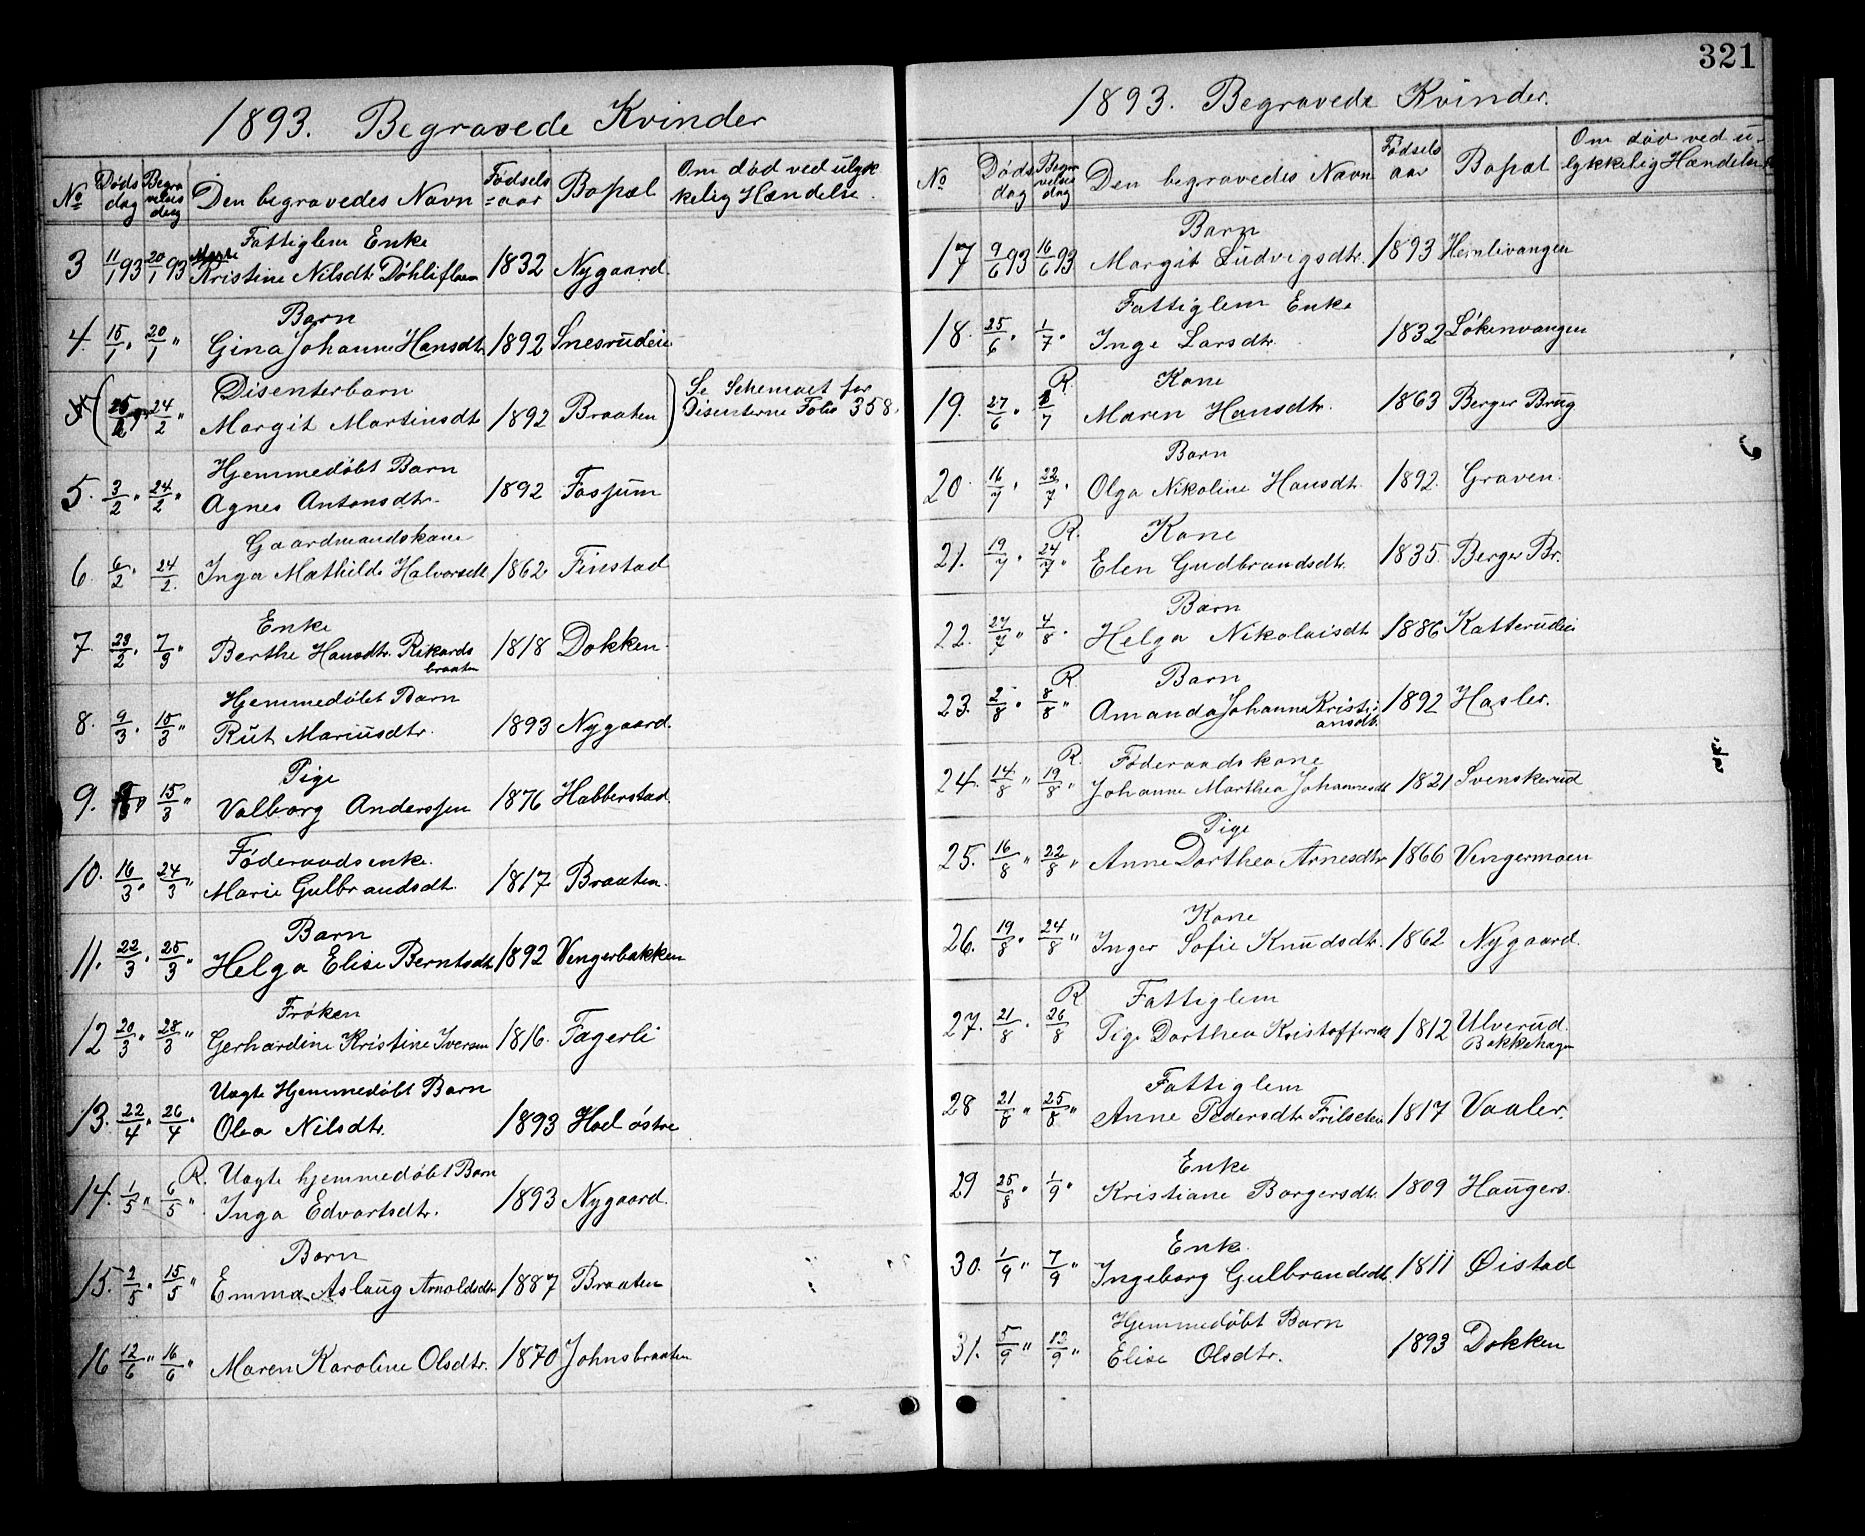 321
1893. Begravede Kvinder
No Døds dag Begravelses dag Den begravedes Navn Fødsels=aar Bopæl Om død ved ulyk kelig Hændelse.
Fattiglem Enke
3 11/1 93 20/1 93 Kristine Nilsdt. Døhliflaen 1832 Nygaard.
Barn
4. 15/1 " 20/1 " Gina Johanne Hansdt. 1892 Snesrudeie
Disenterbarn
24/2 " Margit Martinsdt. 1892 Braaten
Se Schemaet for
Disenterne Folio 358.
Hjemmedøbt Barn
5. 3/2 " 24/2 " Agnes Antonsdtr. 1892 Fossum
Gaardmandskone
6. 6/2 " 24/2. Inga Mathilde Halvorsdt. 1862 Finstad
Enke
7. 23/2 " 7/3 " Berthe Hansdtr. Rikards
braaten 1818 Dokken.
Hjemmedøbt Barn
8. 9/3 " 15/3 " Rut Mariusdtr. 1893 Nygaard.
Pige
9. 15/3 " Valborg Anderssen 1876 Habberstad.
Føderaadsenke.
10. 16/3 " 24/3 " Marie Gulbrandsdt. 1817 Braaten.
Barn
11. 22/3 " 25/3 " Helga Elise Berntsdt. 1892 Vengerbakken
Frøken
12 20/3 " 28/3 " Gerhardine Kristine Iversen 1816. Fagerli
Uægte Hjemmedøbt Barn
13. 22/4 " 26/4 " Olea Nilsdtr. 1893 Hoel østre
R. Uægte hjemmedøbt Barn
14. 1/5 " 6/5 " Inga Edvartsdtr. 1893 Nygaard.
Barn
15. 2/5 " 15/5 " Emma Aslaug Arnoldsdtr. 1887 Braaten
16 12/6 " 16/6 " Maren Karoline Olsdtr. 1870 Johnsbraaten
1893. Begravede Kvinder.
No Døds dag Begravelses dag Den begravedes Navn Fødsels aar Bopæl Om død ved u-lykkelig Hændelse
Barn
17 9/6 93 16/6 93 Margit Ludvigsdtr. 1893 Heinlivangen
Fattiglem Enke
18. 25/6 " 1/7 " Inge Larsdtr. 1832 Løkenvangen
R. Kone
19. 27/6 " Maren Hansdtr. 1863 Berger Brug
Barn
20 16/7 " 22/7 " Olga Nikoline Hansdt. 1892. Graven.
R. Kone
21. 19/7 " 24/7 " Elen Gudbrandsdtr. 1835. Berger Br.
Barn
22. 27/7 " 4/8 " Helga Nikolaisdt. 1886 Katterudeie
R. Barn
23. 2/8 " 8/8 " Amanda Johanne Kristi-
ansdt. 1892 Hasler.
R. Føderaadskone
24. 14/8 " 19/8 " Johanne Marthea Johannesdt. 1821 Svenskerud
Pige
25. 16/8 " 22/8 " Anne Dorthea Arnesdtr. 1866 Vengermoen
Kone
26. 19/8 " 24/8 " Inger Sofie Knudsdtr. 1862 Nygaard.
R. Fattiglem
27. 21/8 " 26/8 Pige Dorthea Kristoffersdt. 1812 Ulverud.
Bakkehagen
Fattiglem
28 21/8 " 25/8 " Anne Pedersdtr. Frilseteie 1817 Vaaler.
Enke
29 25/8 " 1/9 " Kristiane Borgersdtr. 1809 Haugers.
Enke.
30. 1/9 " 7/9 " Ingeborg Gulbrandsdt. 1811 Øistad
Hjemmedøbt Barn
31. 5/9 " 12/9 " Elise Olsdtr. 1893 Dokken